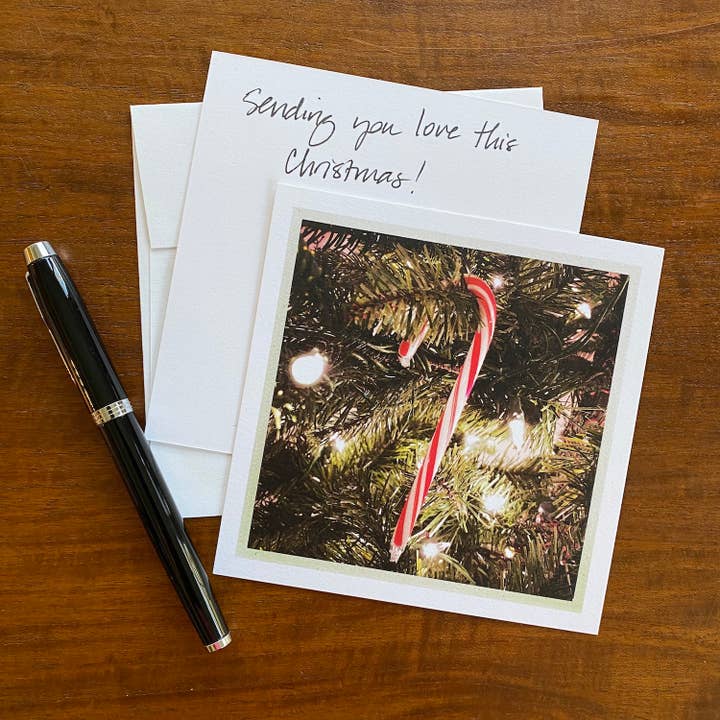 Sending you love this
Christmas!